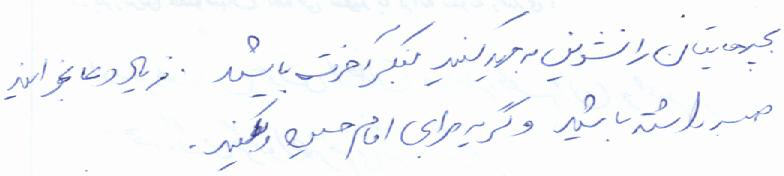 بچه‌هایتان را تشویق به جهاد کنید بفکر آخرت باشید . زیاد دعا بخوانید
صبر داشته باشید و گریه برای امام حسین و کنید .